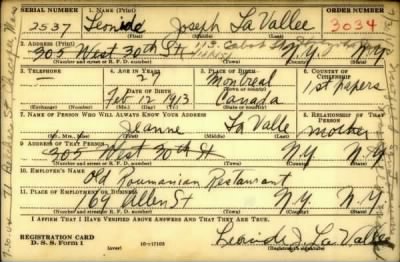 SERIAL NUMBER 1. NAME (Print) ORDER NUMBER
2537 Leonide Joseph La Vallee 3034
(First) (Middle) (Last)
2. ADDRESS (Print)
305 West 30th St N.Y. N.Y.
(Number and street or R. F. D. number) (Town) (County) (State)
3. TELEPHONE 4. AGE IN YEARS 5. PLACE OF BIRTH 6. COUNTRY OF CITIZENSHIP
27 Montreal
DATE OF BIRTH (Town or county) 1st papers
Feb 12 1913 Canada
(Exchange) (Number) (Mo.) (Day) (Yr.) (State or country)
7. NAME OF PERSON WHO WILL ALWAYS KNOW YOUR ADDRESS 8. RELATIONSHIP OF THAT PERSON
Jeanne La Valle mother
(Mr., Mrs., Miss) (First) (Middle) (Last)
9. ADDRESS OF THAT PERSON
305 West 30th St N.Y. N.Y.
(Number and street or R. F. D. number) (Town) (County) (State)
10. EMPLOYER'S NAME
Old Roumanian Restaurant
11. PLACE OF EMPLOYMENT OR BUSINESS
169 Allen St N.Y. N.Y.
(Number and street or R. F. D. number) (Town) (County) (State)
I AFFIRM THAT I HAVE VERIFIED ABOVE ANSWERS AND THAT THEY ARE TRUE.
REGISTRATION CARD
D. S. S. Form 1 (over) Leonide J. La Vallee
(Registrant's signature)